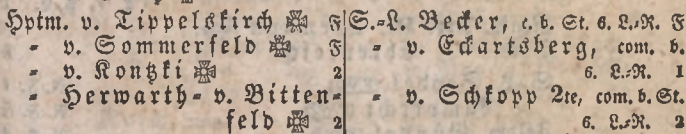 Hptm. v. Tippelskirch ✠ F
- v. Sommerfeld ✠ F
- v. Kontzki ✠ 2
- Herwarth- v. Bitten-
feld ✠ 2
S.-L. Becker, c. b. St. 6. L.-R. F
- v. Eckartsberg, com. b.
6. L.-R. 1
- v. Schkopp 2te, com. b. St.
6. L.-R. 2